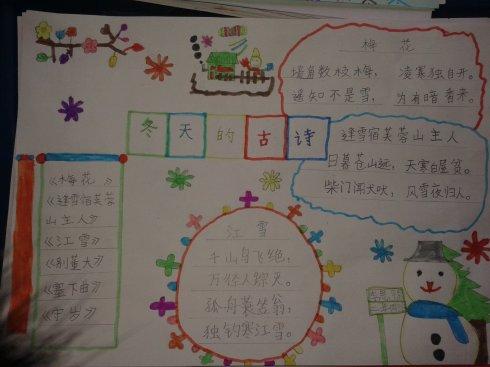 梅 花
墙角数枝梅，凌寒独自开。
遥知不是雪，为有暗香来。
冬天的古诗
逢雪宿芙蓉山主人
日暮苍山远，天寒白屋贫。
柴门闻犬吠，风雪夜归人。
《梅花》
《逢雪宿芙蓉
山主人》
《江雪》
《别董大》
《塞下曲》
《守岁》
江雪
千山鸟飞绝，
万径人踪灭。
孤舟蓑笠翁，
独钓寒江雪。